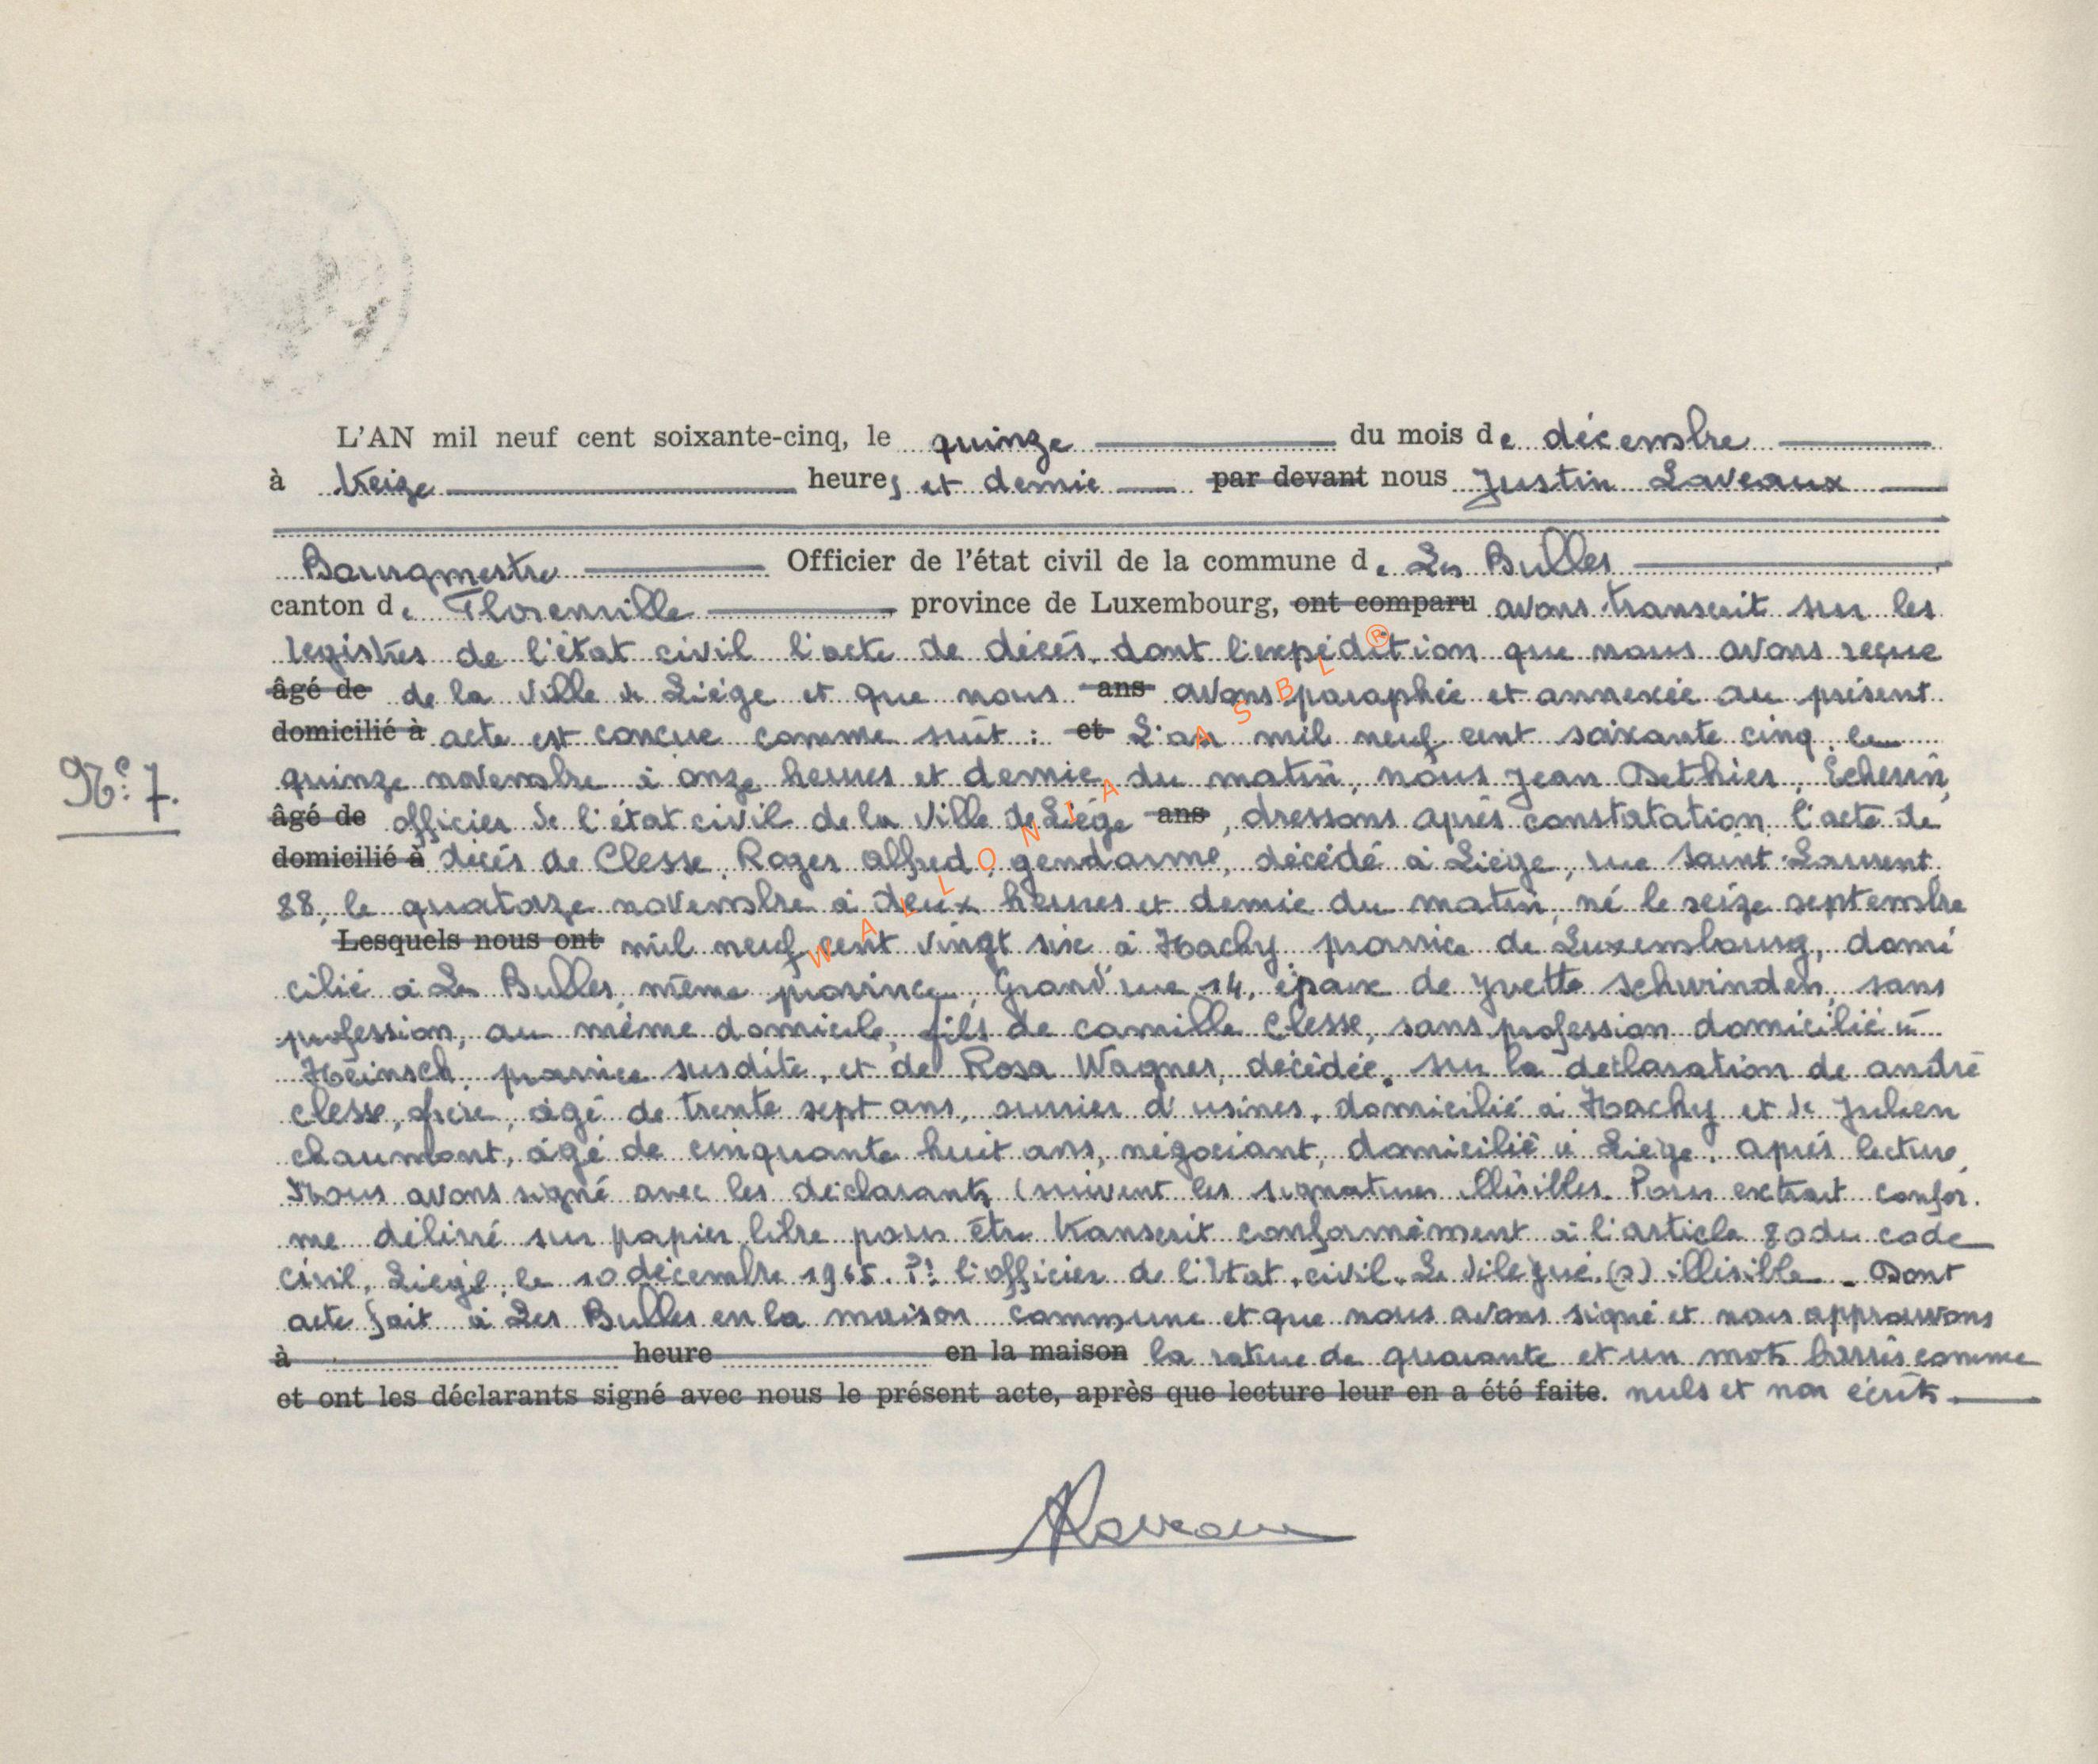 L'AN mil neuf cent soixante-cinq, le quinze du mois de décembre
à treize heures et demie par devant nous Justin Laveaux
Bourgmestre Officier de l'état civil de la commune de Les Bulles
canton de Florenville province de Luxembourg, ont comparu avons transcrit sur les
registres de l'état civil l'acte de décès dont l'expédition que nous avons reçue
âgé de de la ville de Liège et que nous ans avons paraphée et annexée au présent
domicilié à acte est conçue comme suit : et L'an mil neuf cent soixante cinq, le
quinze novembre à onze heures et demie du matin, nous Jean Dethier, Echevin,
N° 7.
âgé de officier de l'état civil de la ville de Liège ans, dressons après constatation l'acte de
domicilié à décès de Clesse, Roger Alfred, gendarme, décédé à Liège, rue Saint Laurent
88, le quatorze novembre à deux heures et demie du matin, né le seize septembre
Lesquels nous ont mil neuf cent vingt six à Hachy, province de Luxembourg, domi
cilié à Les Bulles, même province, Grand'rue 14, époux de Yvette Schwinden, sans
profession, au même domicile, fils de Camille Clesse, sans profession domicilié à
Heinsch, province susdite, et de Rosa Wagner, décédée. Sur la déclaration de André
Clesse, frère, âgé de trente sept ans, ouvrier d'usines, domicilié à Hachy et de Julien
Chaumont, âgé de cinquante huit ans, négociant, domicilié à Liège. Après lecture,
Nous avons signé avec les déclarants (suivent les signatures illisibles. Pour extrait confor.
me délivré sur papier libre pour être transcrit conformément à l'article 80 du code
civil, Liège, le 10 décembre 1965. Pr l'officier de l'Etat civil. Le délégué, (s) illisible. Dont
acte fait à Les Bulles en la maison commune et que nous avons signé et nous approuvons
à heure en la maison la rature de quarante et un mots barrés comme
et ont les déclarants signé avec nous le présent acte, après que lecture leur en a été faite. nuls et non écrits.
Laveaux
WALLONIA ASBL ®